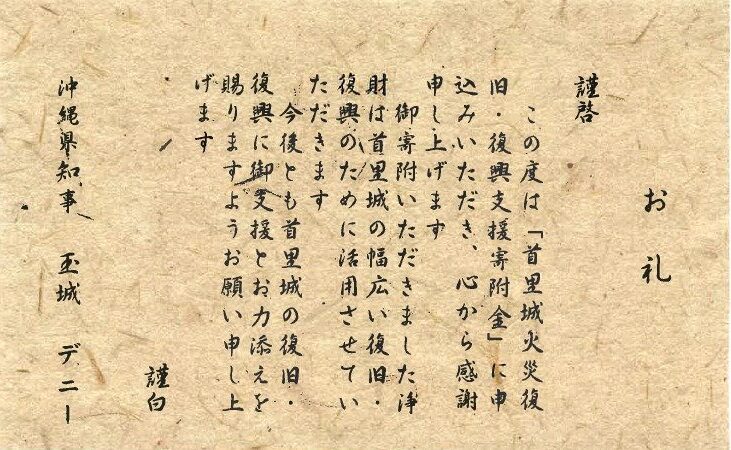 お礼
謹啓
この度は「首里城火災復
旧・復興支援寄附金」に申
込みいただき、心から感謝
申し上げます
御寄附いただきました浄
財は首里城の幅広い復旧・
復興のために活用させてい
ただきます
今後とも首里城の復旧・
復興に御支援とお力添えを
賜りますようお願い申し上
げます
謹白
沖縄県知事 玉城 デニー